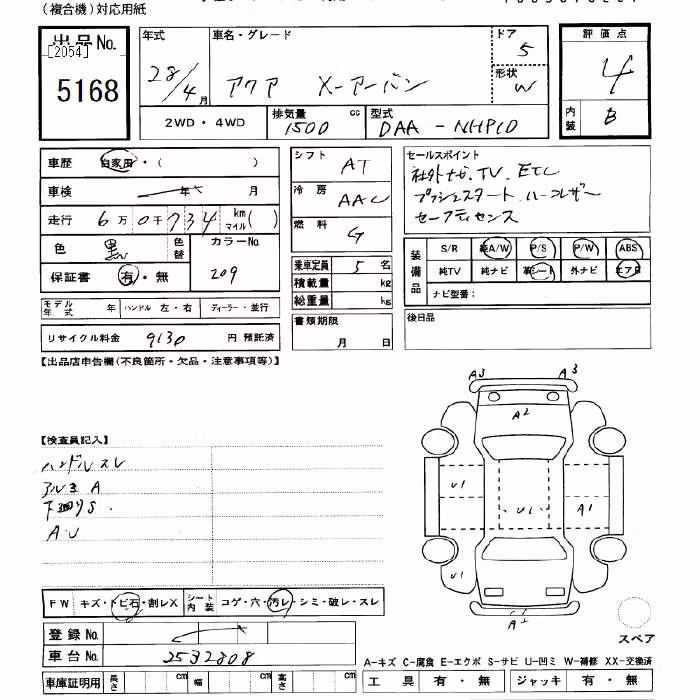 (複合機)対応用紙
出品No.
[2054]
5168
年式
28/4月
車名・グレード
アクア X-アーバン
ドア
5
形状
W
評価点
4
内装
B
2WD・4WD
排気量
1500 cc
型式
DAA-NHP10
車歴 自家用・( )
車検 年 月
走行 6万0千734 km マイル( )
色 黒 色替
カラーNo. 209
保証書 有・無
モデル年式 年 ハンドル 左・右 ディーラー・並行
リサイクル料金 9130 円 預託済
シフト AT
冷房 AAC
燃料 G
乗車定員 5 名
積載量 kg
総重量 kg
書類期限
月 日
セールスポイント
社外ナビ、TV、ETC
プッシュスタート、ハーフレザー
セーフティセンス
装備品
S/R 純A/W P/S P/W ABS
純TV 純ナビ 革シート 外ナビ エアB
ナビ型番:
後日品
【出品店申告欄(不良箇所・欠品・注意事項等)】
【検査員記入】
ハンドルスレ
アルミA
下廻りS
A・U
A3 A3
A2
U1 U1 A1
U1
FW キズ・トビ石・割レX
シート内装 コゲ・穴・汚レ・シミ・破レ・スレ
登録No.
車台No. 2532808
車庫証明用 長さ cm 幅 cm 高さ cm
スペア
A-キズ C-腐食 E-エクボ S-サビ U-凹ミ W-補修 XX-交換済
工具 有・無 ジャッキ 有・無